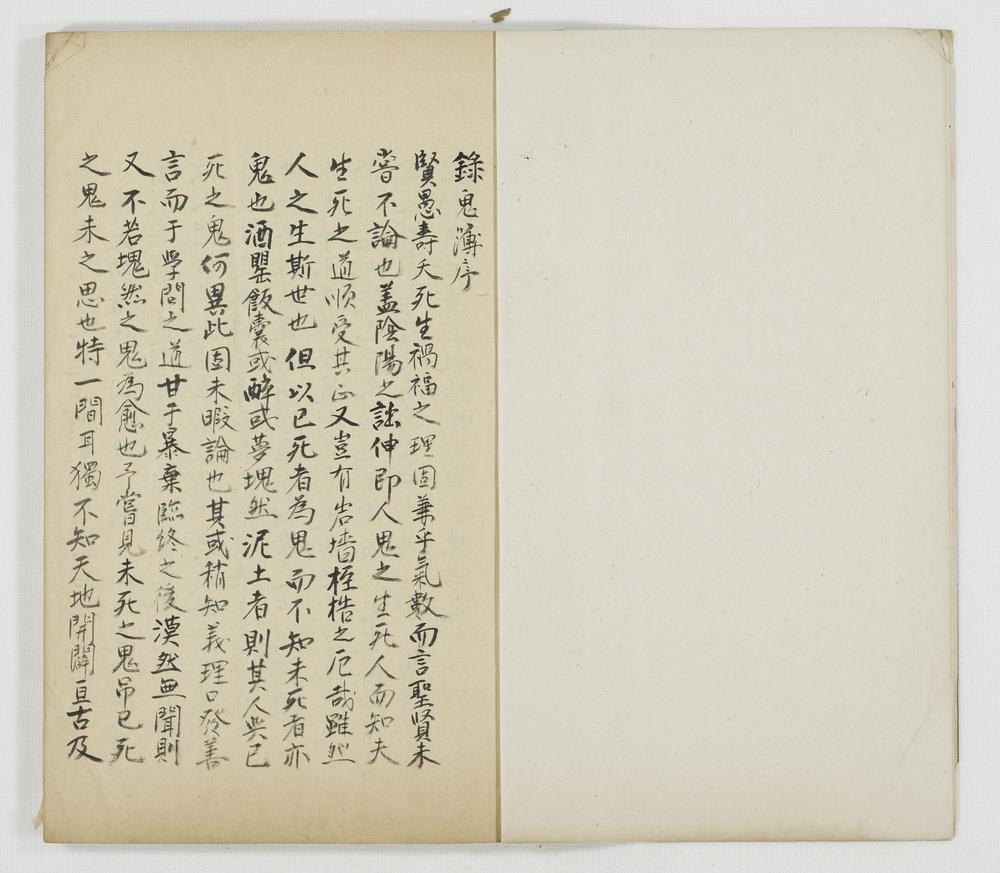 錄鬼簿序
賢愚壽夭死生禍福之理固兼乎氣數而言聖賢未
嘗不論也盖陰陽之詘伸即人鬼之生死人而知夫
生死之道順受其正又豈有岩墻桎梏之厄哉雖然
人之生斯世也但以已死者為鬼而不知未死者亦
鬼也酒罌飯囊或醉或夢塊然泥土者則其人與已
死之鬼何異此固未暇論也其或稍知義理口發善
言而于學問之道甘于暴棄臨終之後漠然無聞則
又不若塊然之鬼為愈也予嘗見未死之鬼吊已死
之鬼未之思也特一間耳獨不知天地開闢亘古及